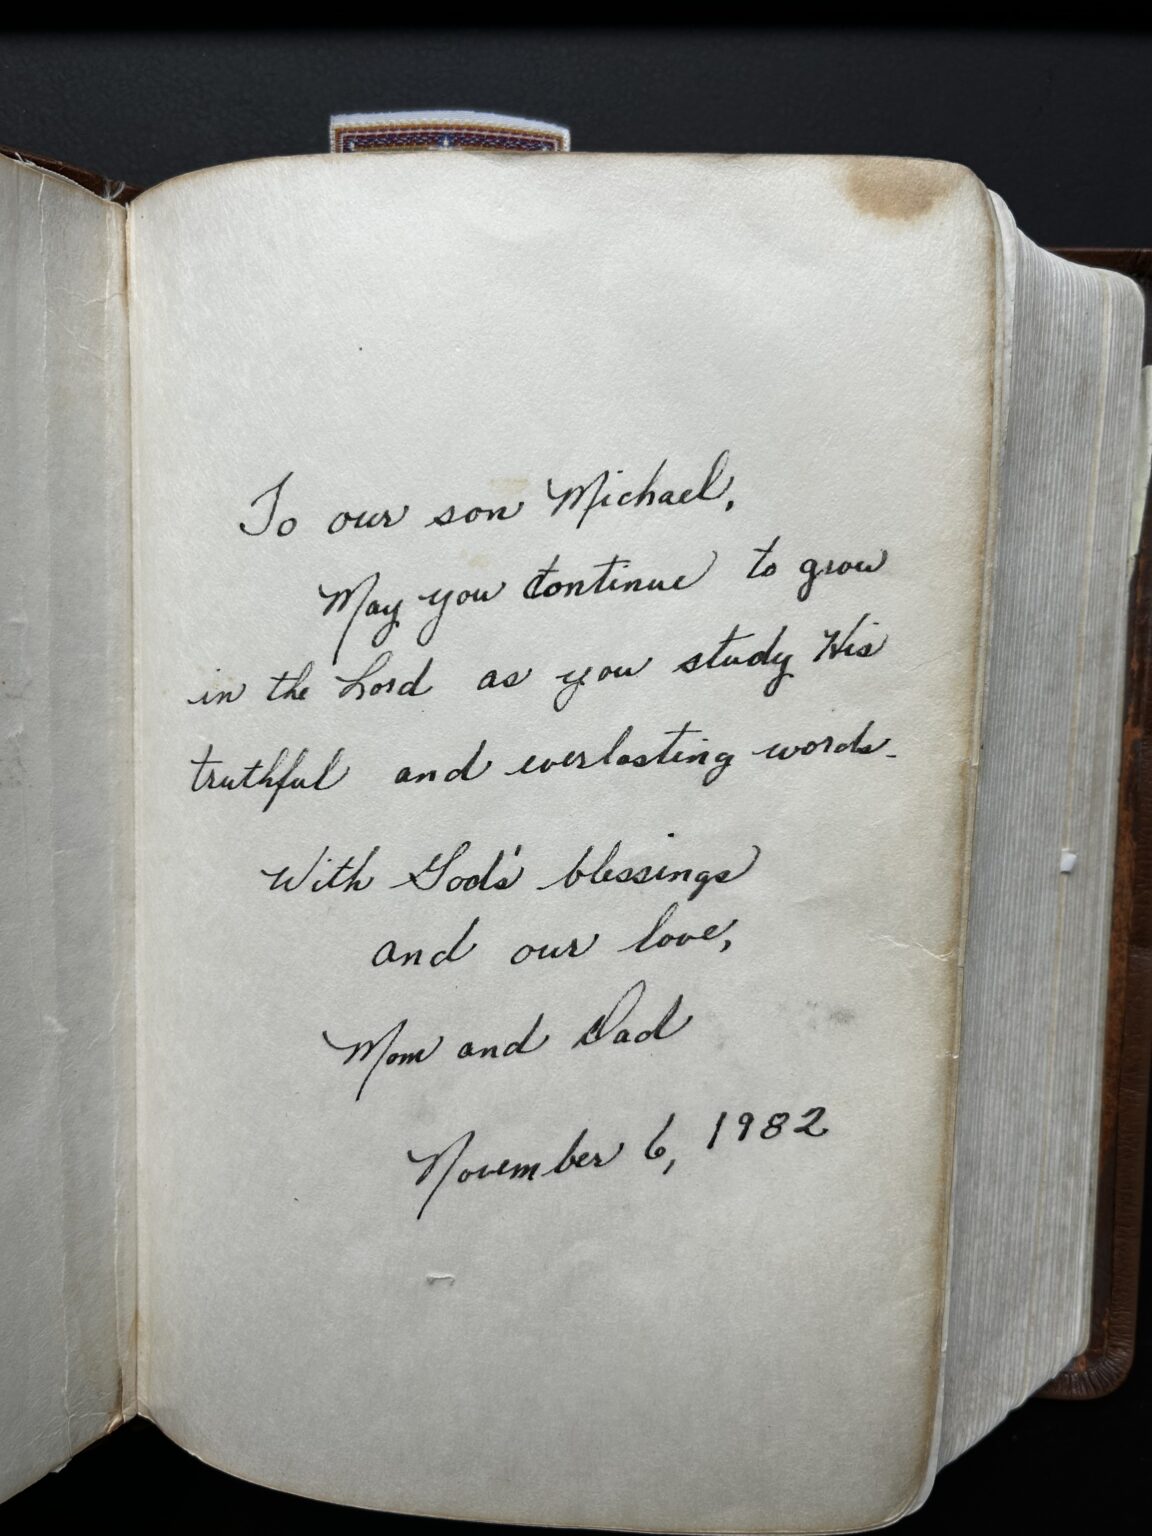 To our son Michael,
May you continue to grow
in the Lord as you study His
truthful and everlasting words.
With God's blessings
and our love,
Mom and Dad
November 6, 1982